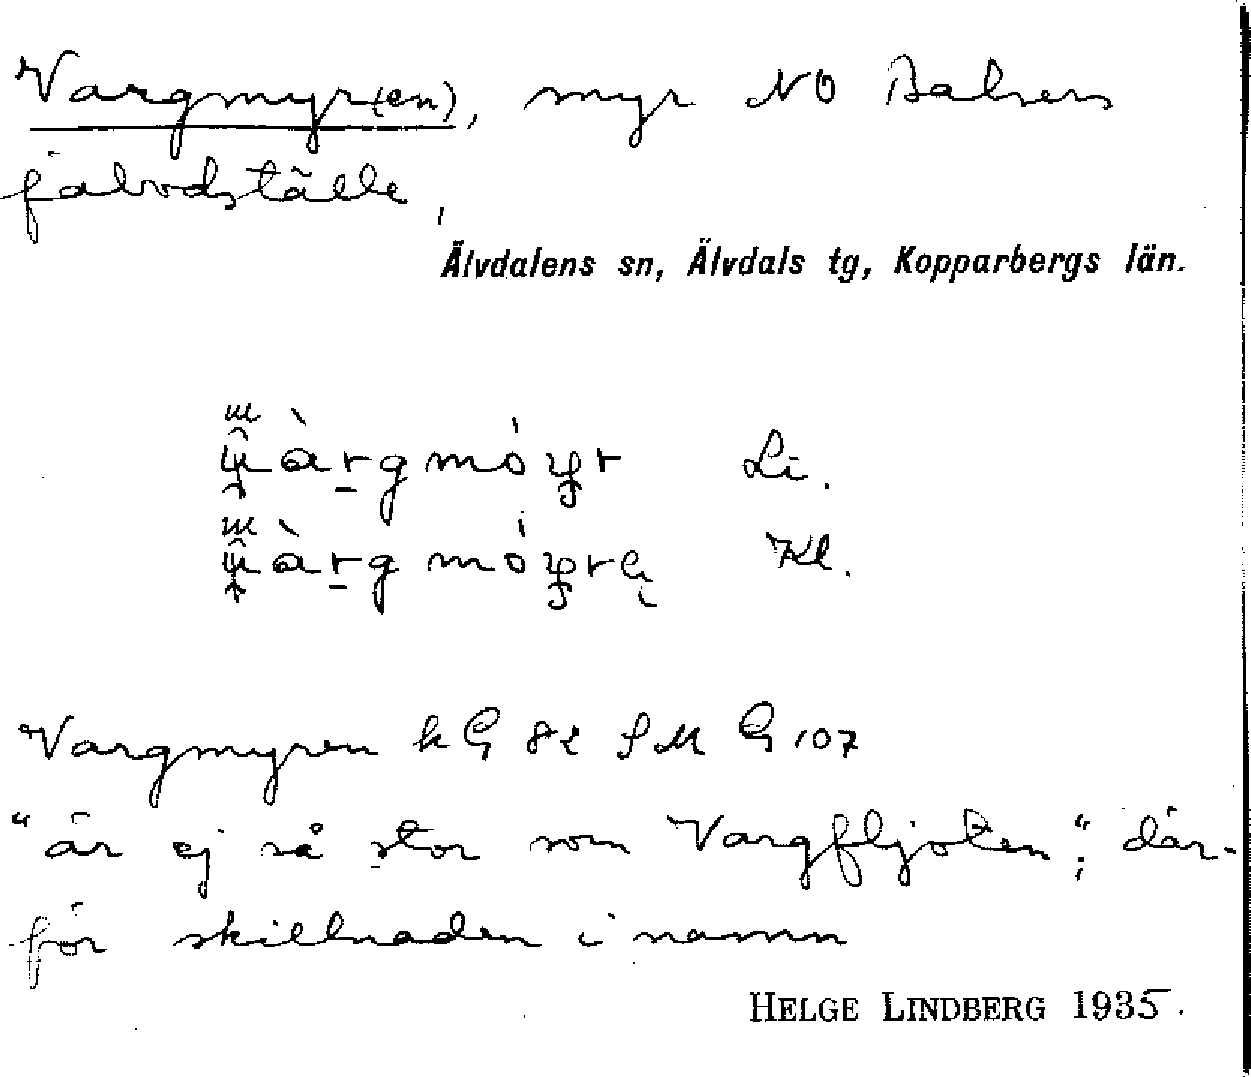 Vargmyr(en), myr NO Balsers
fäbodställe,
Älvdalens sn, Älvdals tg, Kopparbergs län.
Li.
Kl.
Vargmyren k G 82 S M G 107
"är ej så stor som Vargfljoten"; där-
för skillnaden i namn
HELGE LINDBERG 1935.